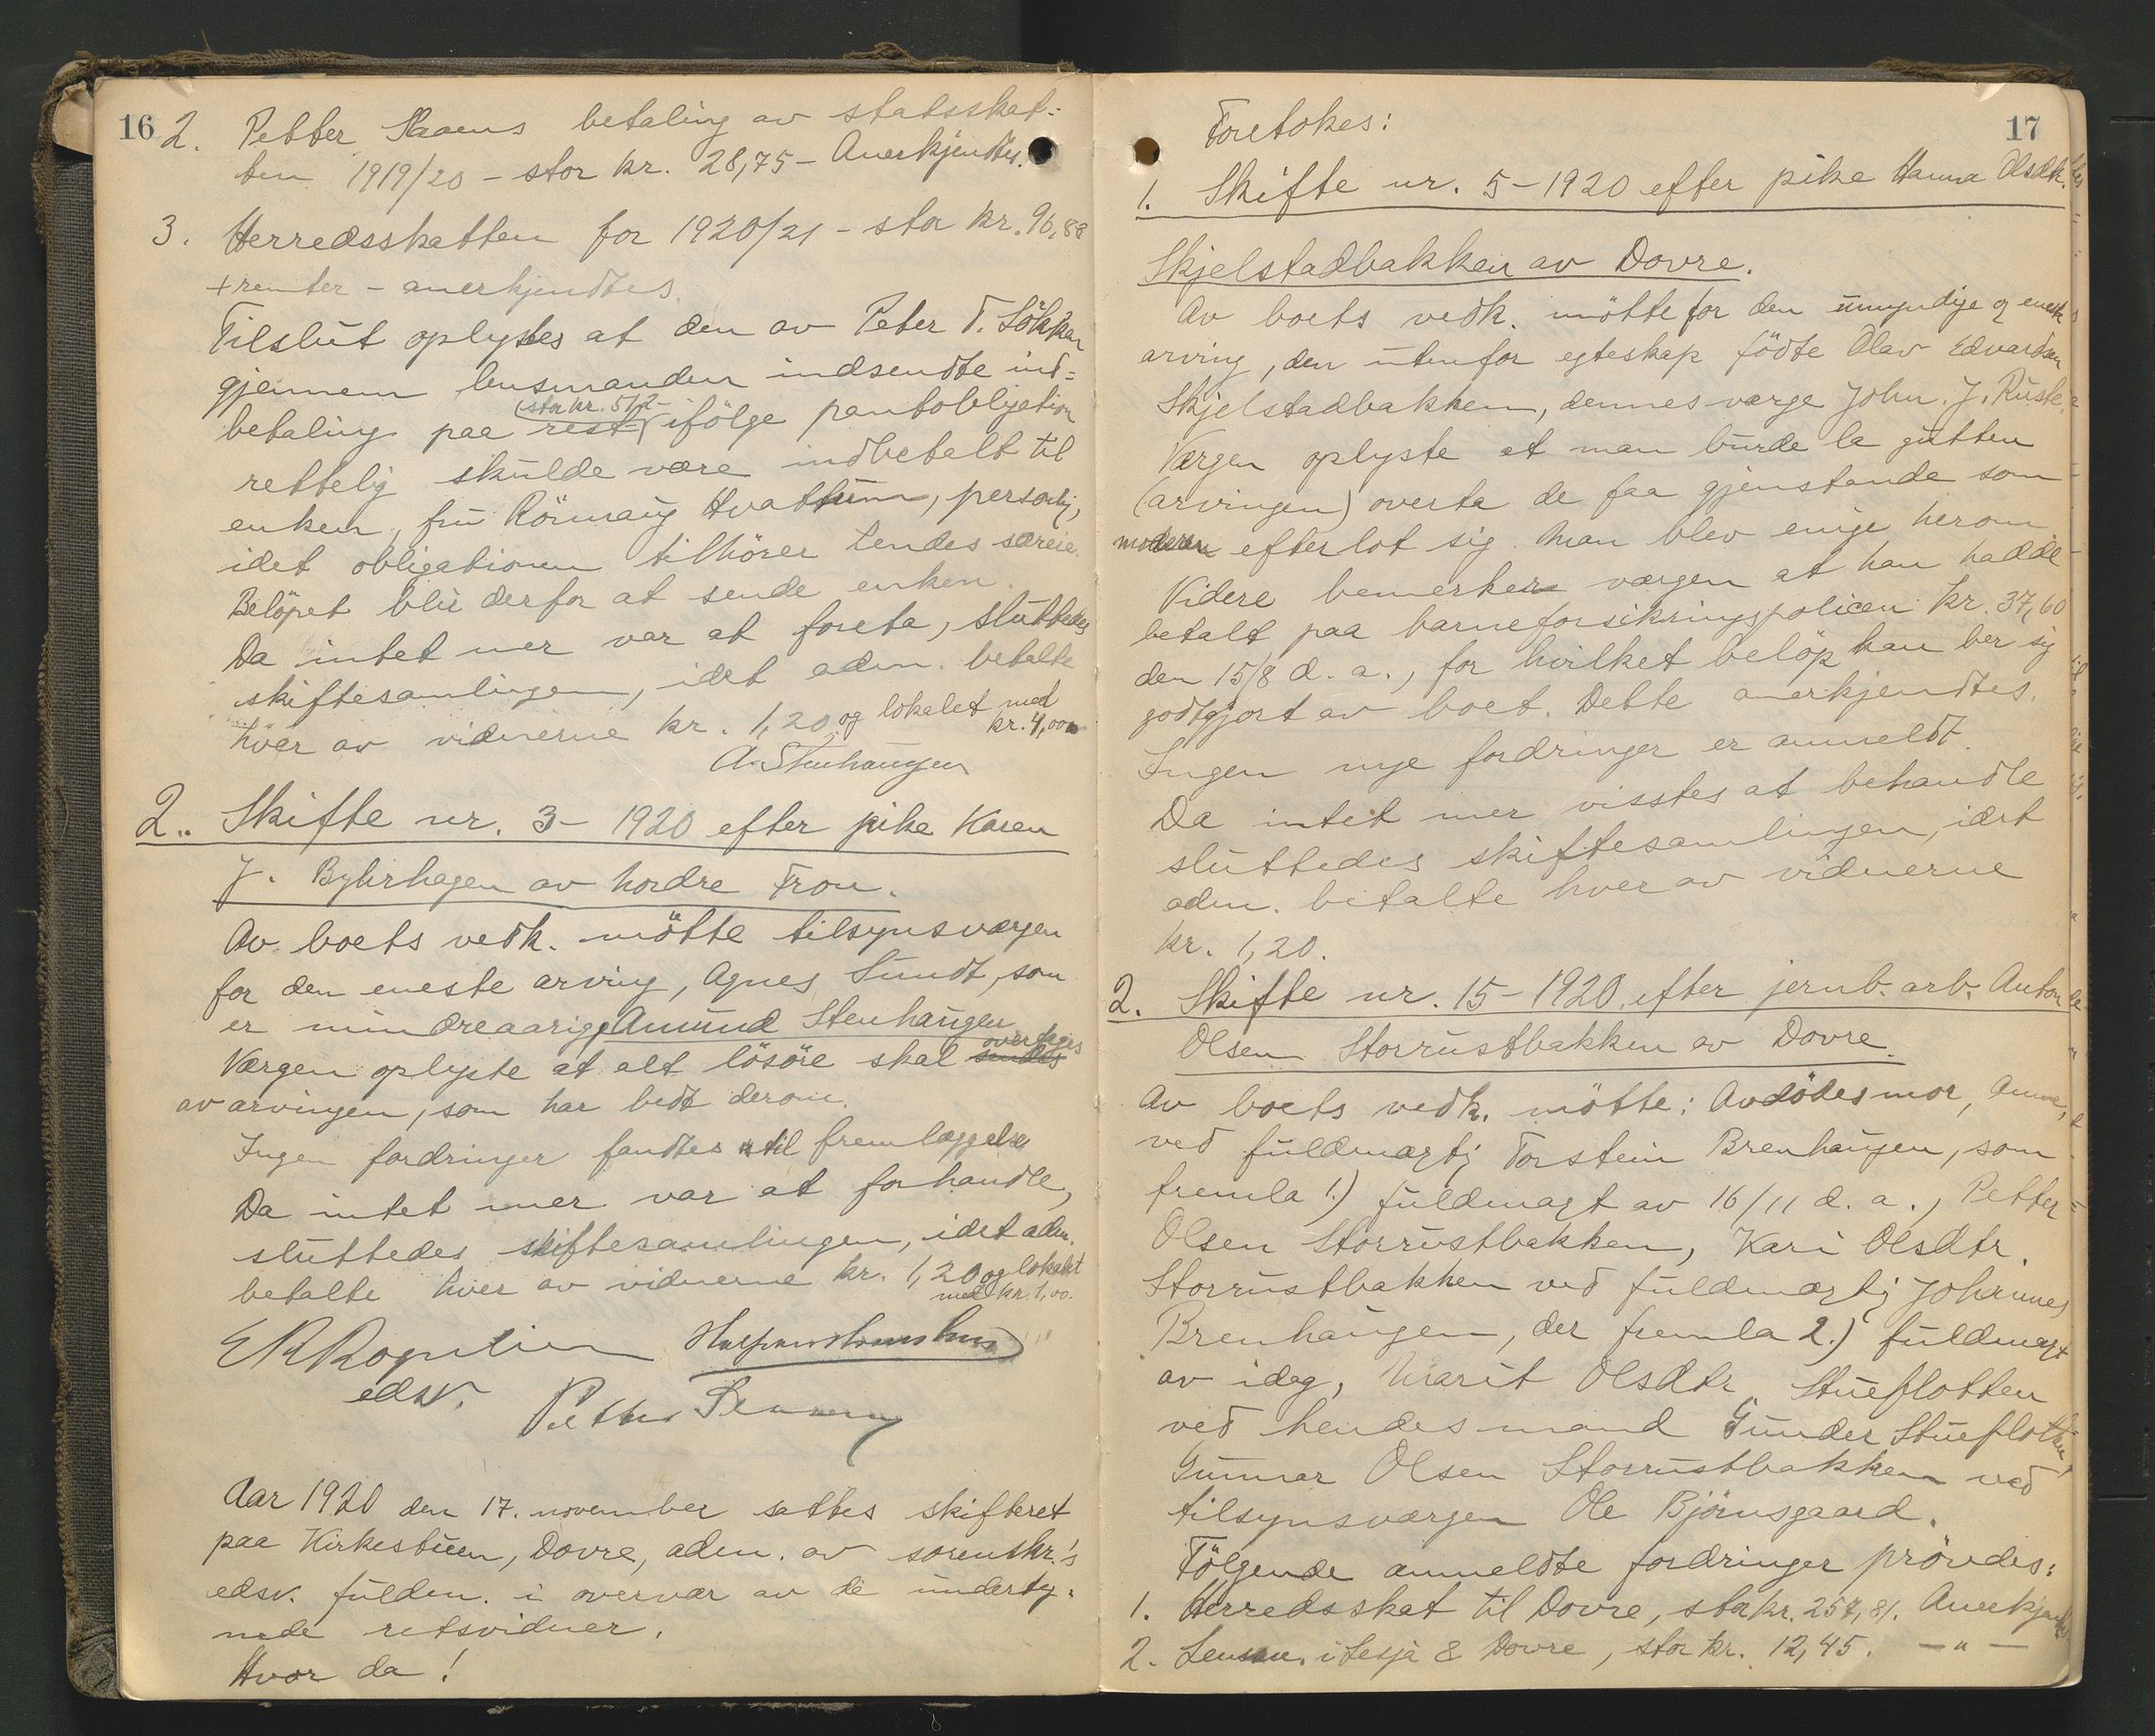 16
2. Petter betaling av statsskat-
ten 1919/20 - stor kr. 28,75 - Anerkjendtes.
3. Herredsskatten for 1920/21 - stor kr. 96,88
+ renter - anerkjendtes.
Tilslut oplystes at den av Peter T. Lökken
gjennem lensmanden indsendte ind-
(stor kr. 512-
betaling paa rest ifölge pantobligation
rettelig skulde være indbetalt til
enken, fru Hvattum, personlig,
idet obligationen tilhörer hendes særeie.
Belöpet blir derfor at sende enken.
Da intet mer var at foreta, sluttedes
skiftesamlingen, idet adm. betalte
hver av vidnerne kr. 1,20 og lokalet med
kr. 4,00
A. Stenhaugen
2. Skifte nr. 3 - 1920 efter pike Karen
J. Bylirhagen av Nordre Fron.
Av boets vedk. mötte tilsynsværgen
for den eneste arving, Agnes Sundt, som
er mindreaarige, Amund Stenhaugen
overtages
Værgen oplyste at alt lösöre skal sendes
av arvingen, som har bedt derom.
Ingen fordringer fandtes til fremlæggelse
Da intet mer var at forhandle,
sluttedes skiftesamlingen, idet adm.
betalte hver av vidnerne kr. 1,20 og lokalet
med kr. 1,00.
E R Rognlien
edsv. Petter
Aar 1920 den 17. november sattes skifteret
paa Kirkestuen, Dovre, adm. av sorenskr.'s
edsv. fuldm. i overvær av de underteg-
nede retsvidner.
Hvor da!
17
Foretokes:
1. Skifte nr. 5 - 1920 efter pike Hanna Olsdtr.
Skjelstadbakken av Dovre.
Av boets vedk. mötte for den umyndige og eneste
arving, den utenfor egteskap födte Olav Edvardsen
Skjelstadbakken, dennes værge John. J. Ruste.
Værgen oplyste at man burde la gutten
(arvingen) overta de faa gjenstande som
moderen efterlot sig. Man blev enige herom
Videre bemerker værgen at han hadde
betalt paa barneforsikringspolicen kr. 37,60
den 15/8 d. a., for hvilket belöp han ber sig
godtgjort av boet. Dette anerkjendtes.
Ingen nye fordringer er anmeldt.
Da intet mer visstes at behandle
sluttedes skiftesamlingen, idet
adm. betalte hver av vidnerne
kr. 1,20.
2. Skifte nr. 15 - 1920 efter jernb. arb. Anton
Olsen Storrustbakken av Dovre.
Av boets vedk. mötte: Avdödes mor, Anne,
ved fuldmægtig Torstein Brenhaugen, som
fremla 1.) fuldmagt av 16/11 d. a., Petter
Olsen Storrustbakken, Kari Olsdtr.
Storrustbakken ved fuldmægtig Johannes
Brenhaugen, der fremla 2.) fuldmagt
av idag, Marit Olsdtr. Stueflotten
ved hendes mand Gunder Stueflotten,
Gunnar Olsen Storrustbakken ved
tilsynsværgen Ole Björnsgaard.
Fölgende anmeldte fordringer prövdes:
1. Herredsskat til Dovre, stor kr. 257,81. Anerkjendtes
2. Lensm. i Lesja & Dovre, stor kr. 12,45. -"-